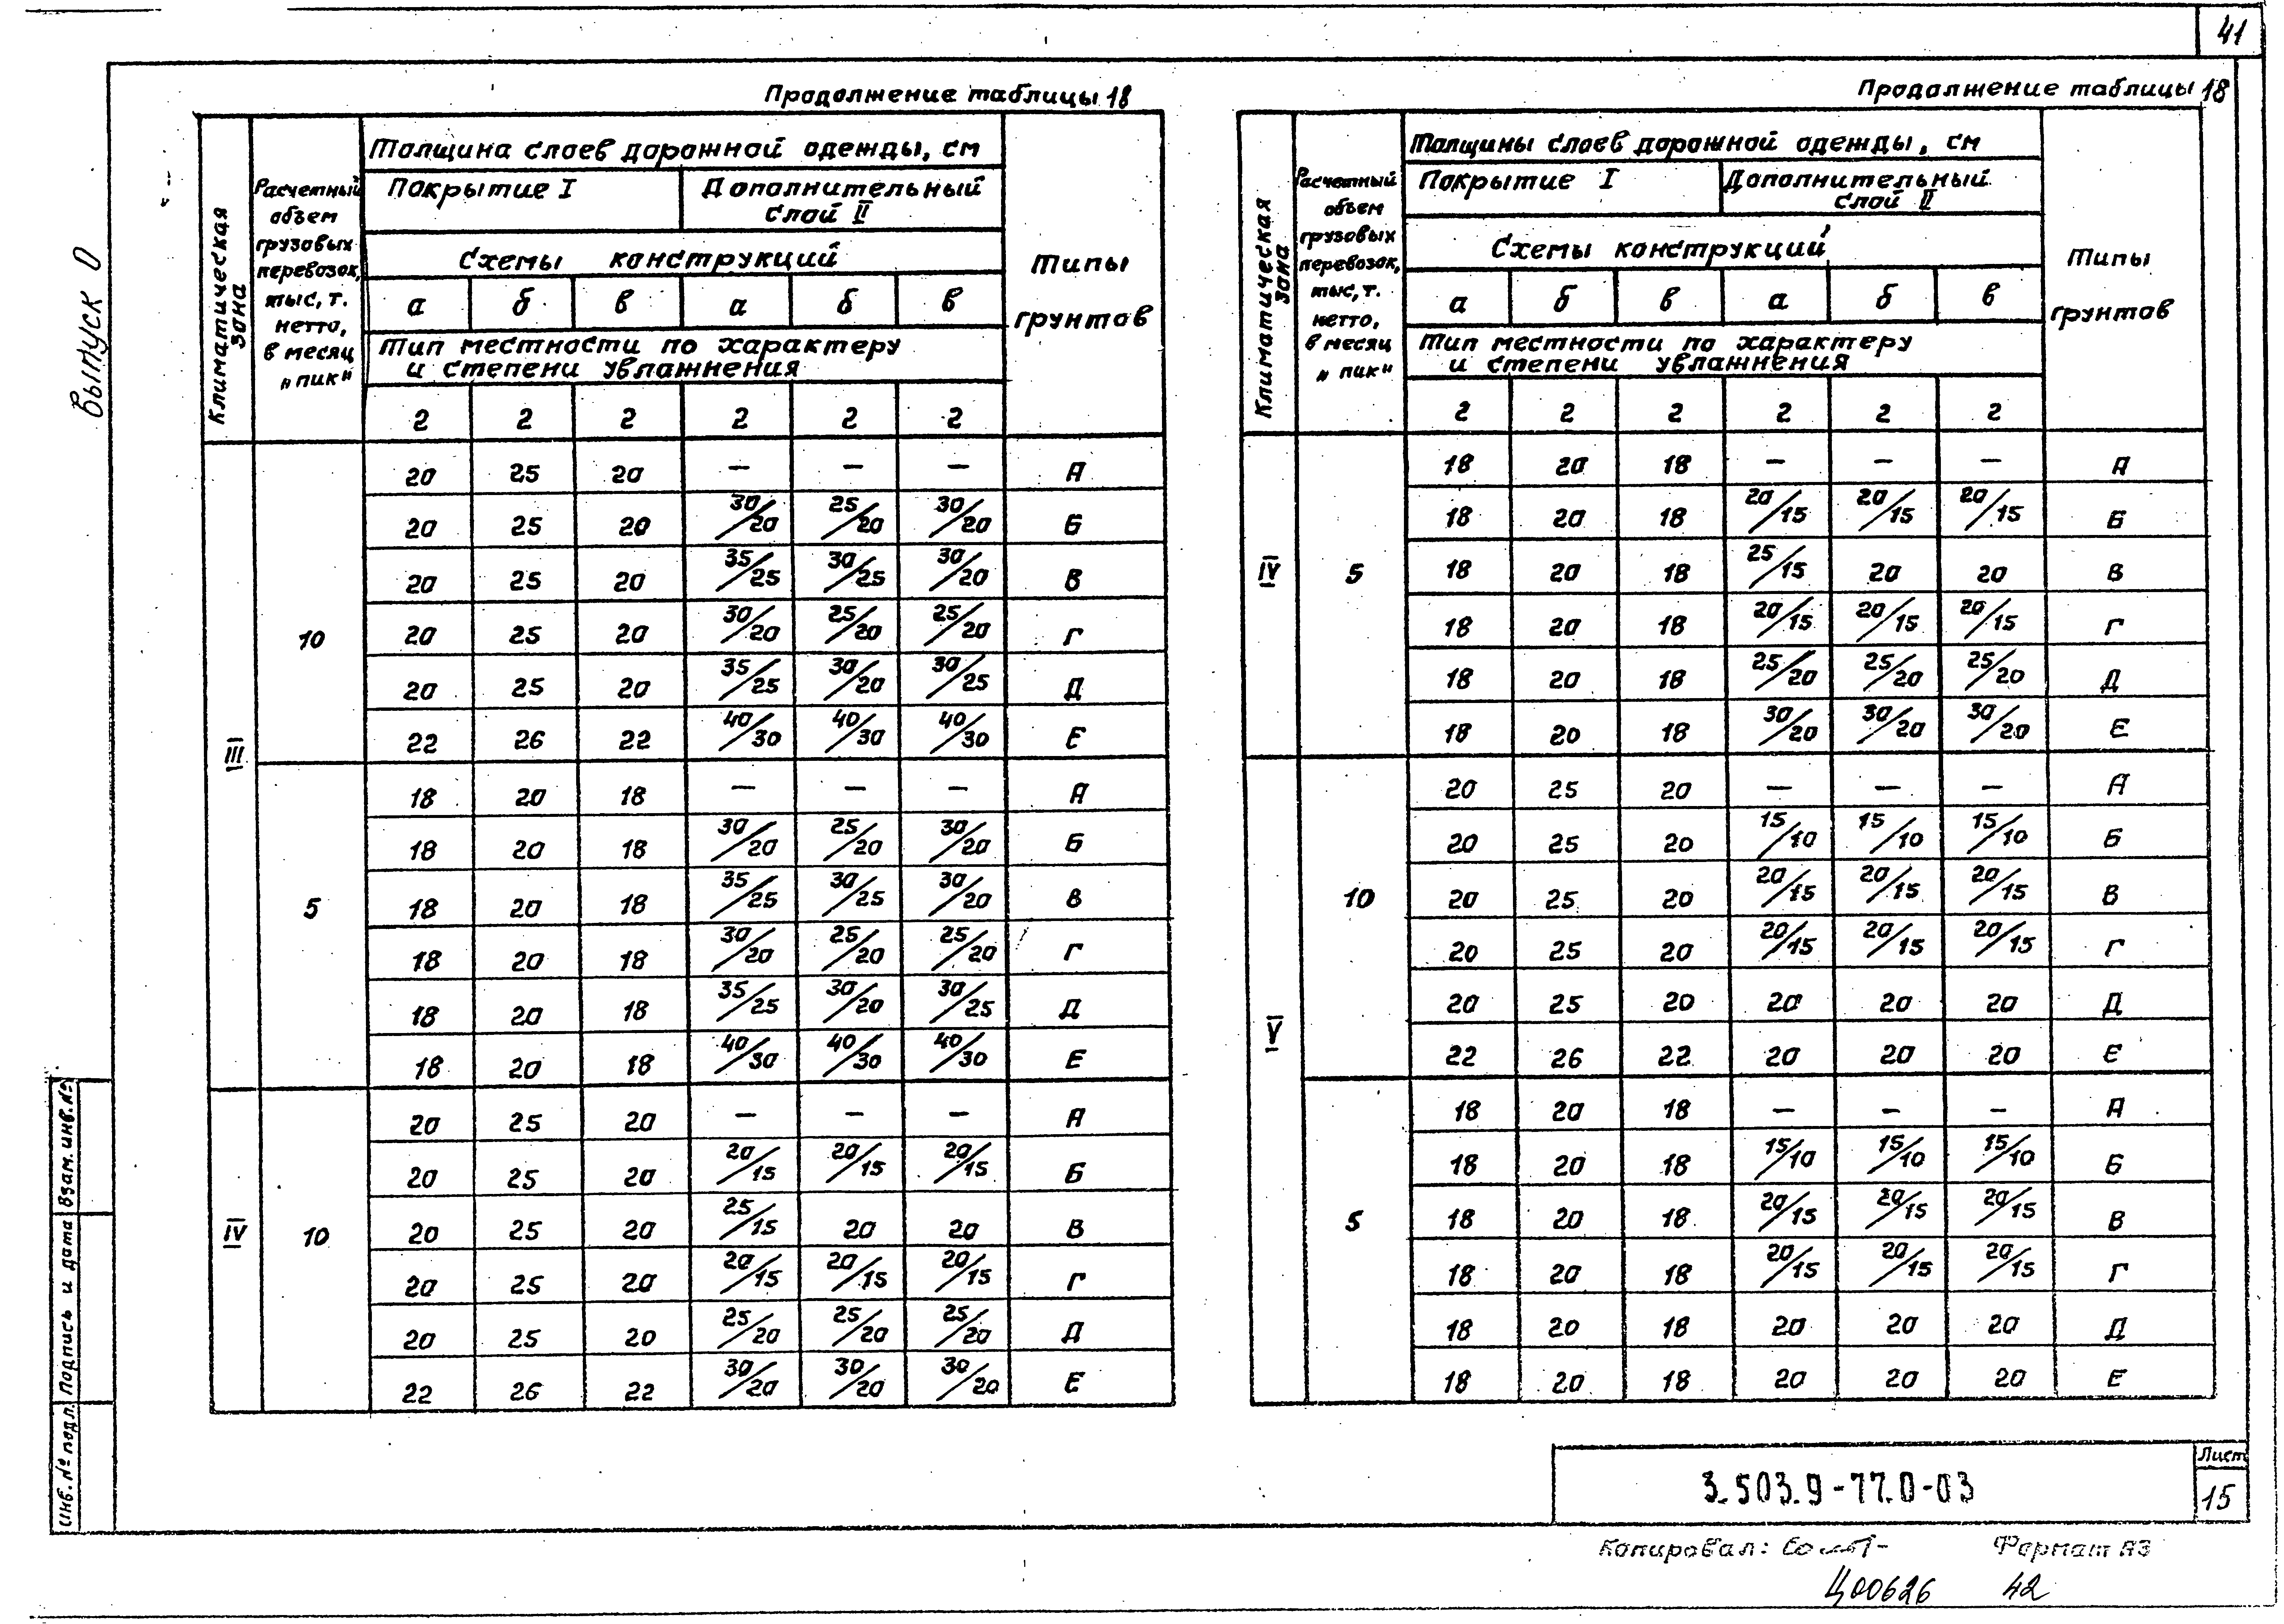 41
Выпуск 0
Продолжение таблицы 18
Климатическая зона
Расчетный объем грузовых перевозок, тыс, т. нетто, в месяц „пик“
Толщина слоев дорожной одежды, см
Типы грунтов
Покрытие I
Дополнительный слой II
Схемы конструкций
а б в а б в
Тип местности по характеру и степени увлажнения
2 2 2 2 2 2
III
10
20 25 20 — — — А
20 25 20 30/20 25/20 30/20 Б
20 25 20 35/25 30/25 30/20 В
20 25 20 30/20 25/20 25/20 Г
20 25 20 35/25 30/20 30/25 Д
22 26 22 40/30 40/30 40/30 Е
5
18 20 18 — — — А
18 20 18 30/20 25/20 30/20 Б
18 20 18 35/25 30/25 30/20 В
18 20 18 30/20 25/20 25/20 Г
18 20 18 35/25 30/20 30/25 Д
18 20 18 40/30 40/30 40/30 Е
IV
10
20 25 20 — — — А
20 25 20 20/15 20/15 20/15 Б
20 25 20 25/15 20 20 В
20 25 20 20/15 20/15 20/15 Г
20 25 20 25/20 25/20 25/20 Д
22 26 22 30/20 30/20 30/20 Е
Продолжение таблицы 18
Климатическая зона
Расчетный объем грузовых перевозок, тыс, т. нетто, в месяц „пик“
Толщины слоев дорожной одежды, см
Типы грунтов
Покрытие I
Дополнительный слой II
Схемы конструкций
а б в а б в
Тип местности по характеру и степени увлажнения
2 2 2 2 2 2
IV
5
18 20 18 — — — А
18 20 18 20/15 20/15 20/15 Б
18 20 18 25/15 20 20 В
18 20 18 20/15 20/15 20/15 Г
18 20 18 25/20 25/20 25/20 Д
18 20 18 30/20 30/20 30/20 Е
V
10
20 25 20 — — — А
20 25 20 15/10 15/10 15/10 Б
20 25 20 20/15 20/15 20/15 В
20 25 20 20/15 20/15 20/15 Г
20 25 20 20 20 20 Д
22 26 22 20 20 20 Е
5
18 20 18 — — — А
18 20 18 15/10 15/10 15/10 Б
18 20 18 20/15 20/15 20/15 В
18 20 18 20/15 20/15 20/15 Г
18 20 18 20 20 20 Д
18 20 18 20 20 20 Е
Инв. № подл. Подпись и дата Взам. инв. №
3.503.9-77.0-03
Лист
15
Копировал:
Формат А3
Ц00626 42